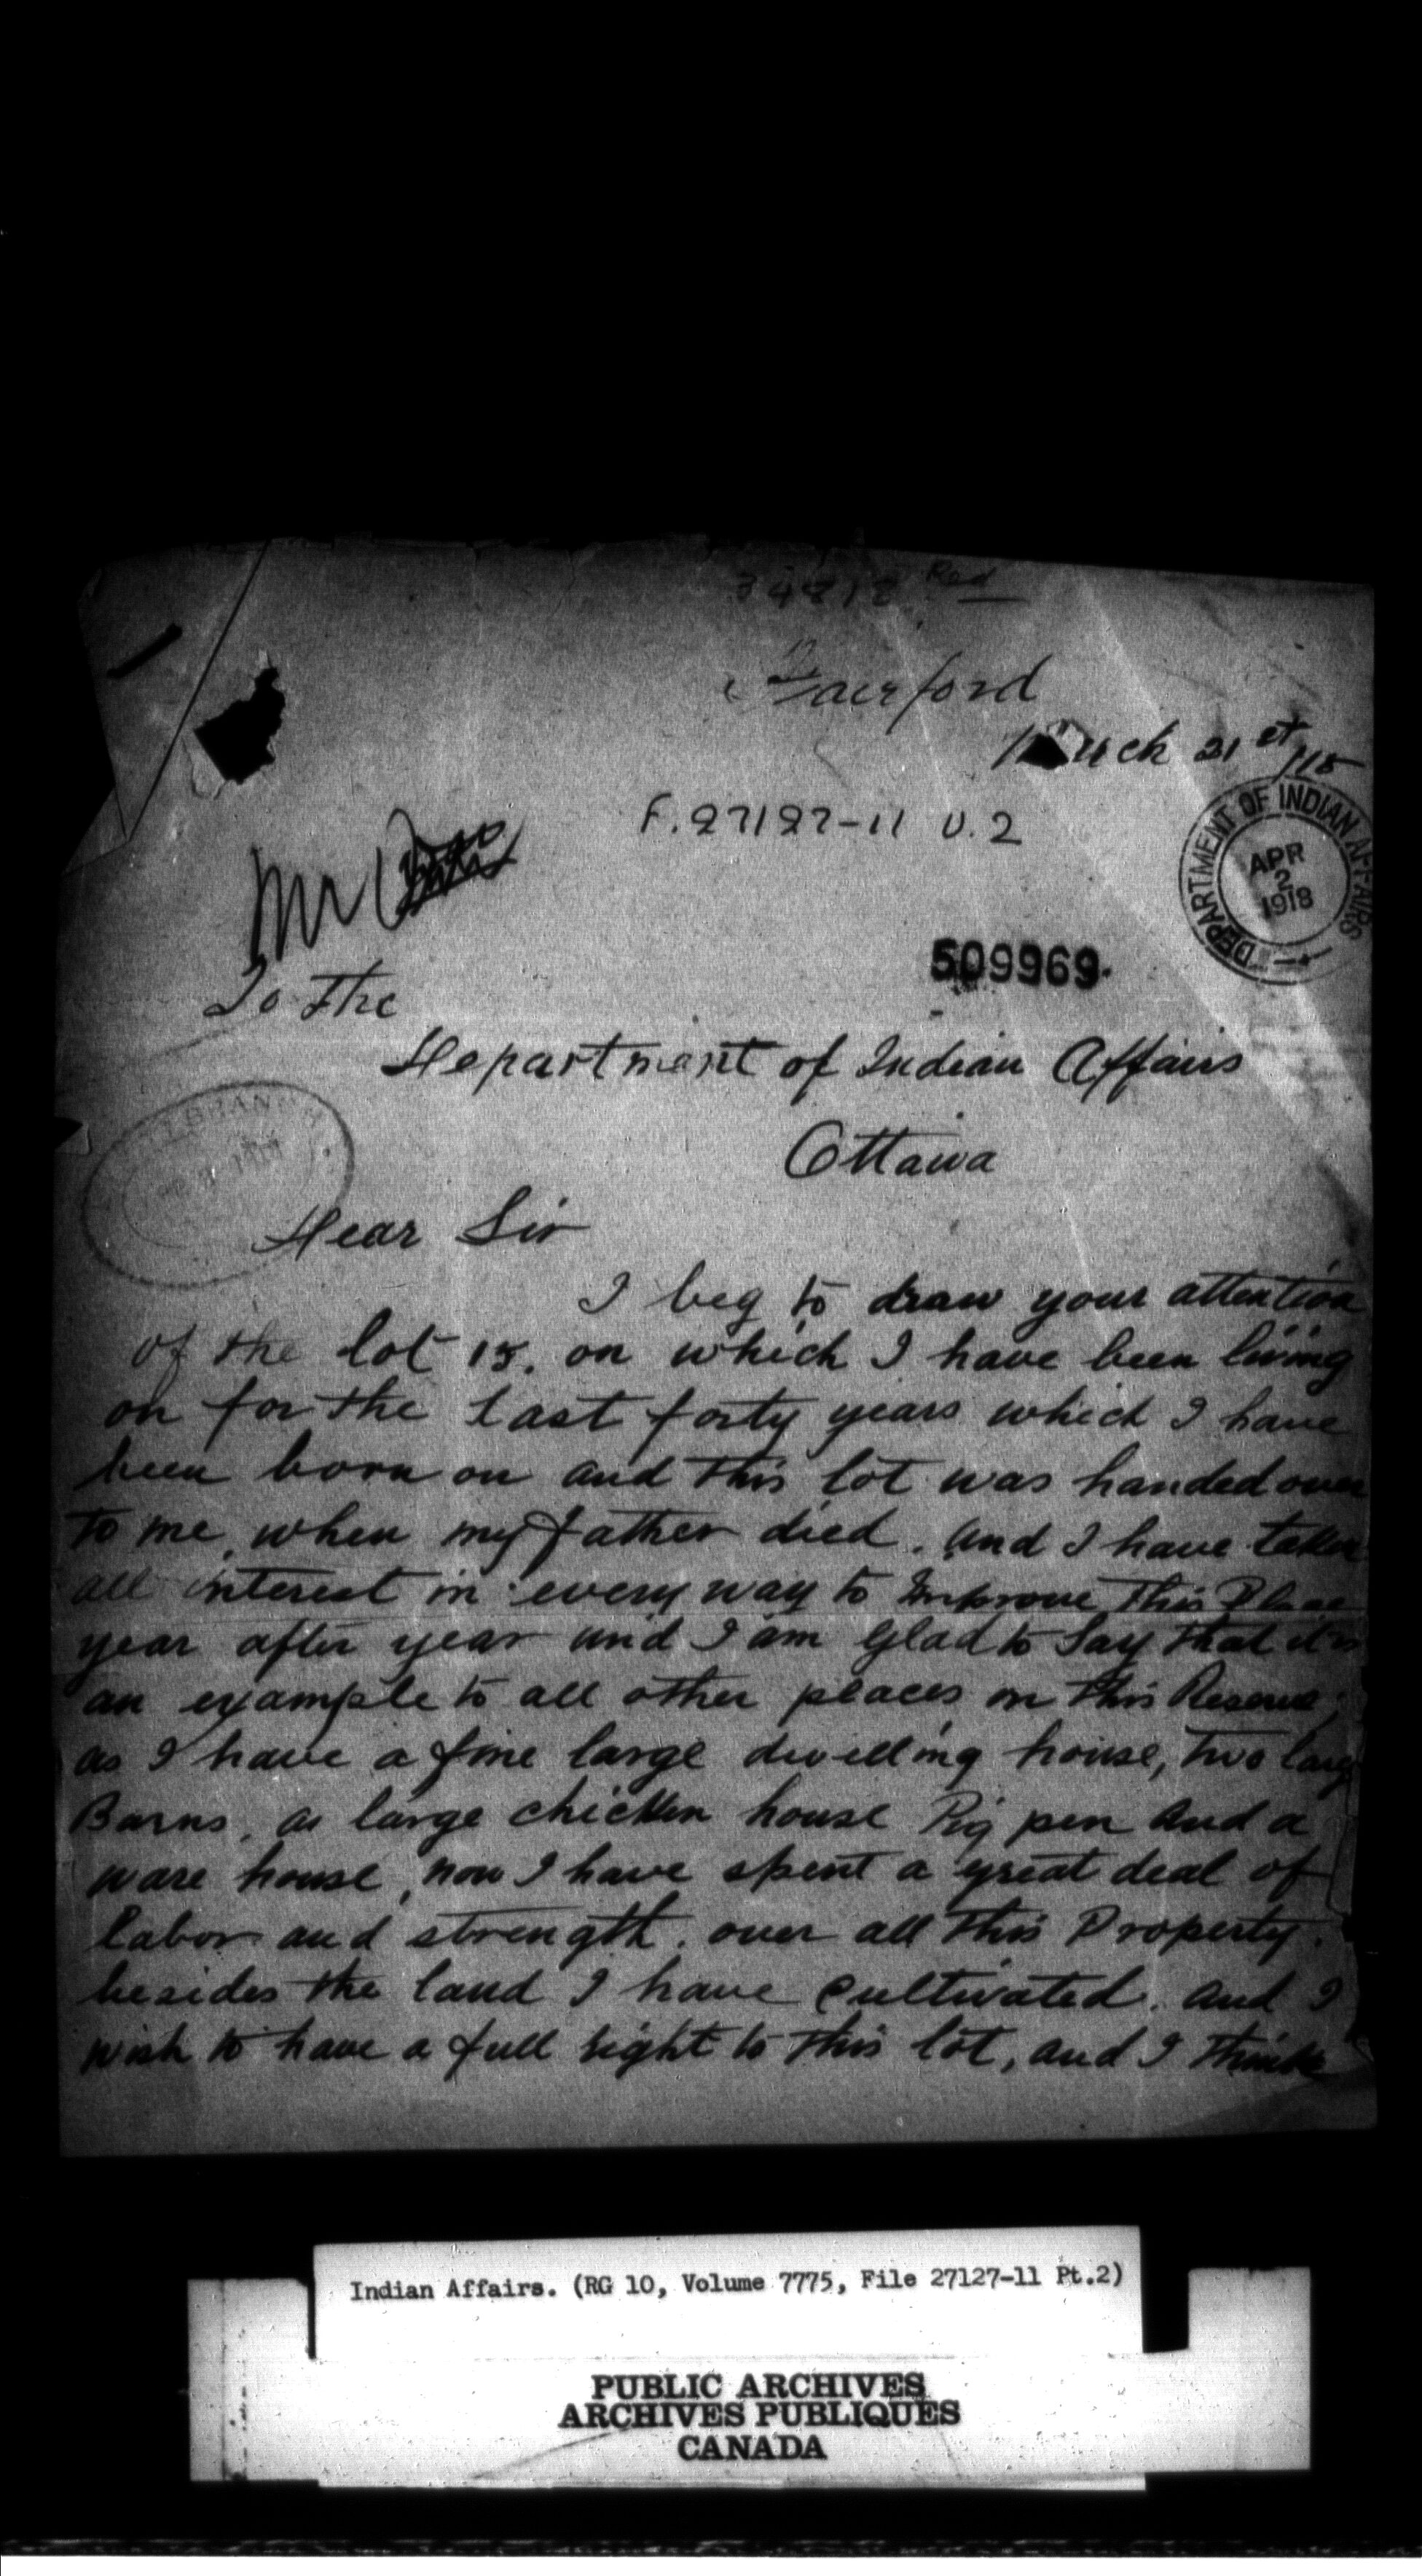 Red
Fairford
March 21st
F. 27127-11 V. 2
DEPARTMENT OF INDIAN AFFAIRS
APR
2
1918
Mr
509969
To The
Department of Indian Affairs
Ottawa
BRANCH
Dear Sir
I beg to draw your attention
of the lot 15, on which I have been living
on for the last forty years which I have
been born on and this lot was handed over
to me, when my father died. and I have taken
all interest in every way to Improve This Place
year after year and I am Glad to Say that it is
an example to all other places on this Reserve,
as I have a fine large dwelling house, Two large
Barns, a large chicken house Pig pen and a
ware house, now I have spent a great deal of
labor and strength. over all this Property.
besides the land I have Cultivated. and I
wish to have a full right to this lot, and I think
Indian Affairs. (RG 10, Volume 7775, File 27127-11 Pt.2)
PUBLIC ARCHIVES
ARCHIVES PUBLIQUES
CANADA